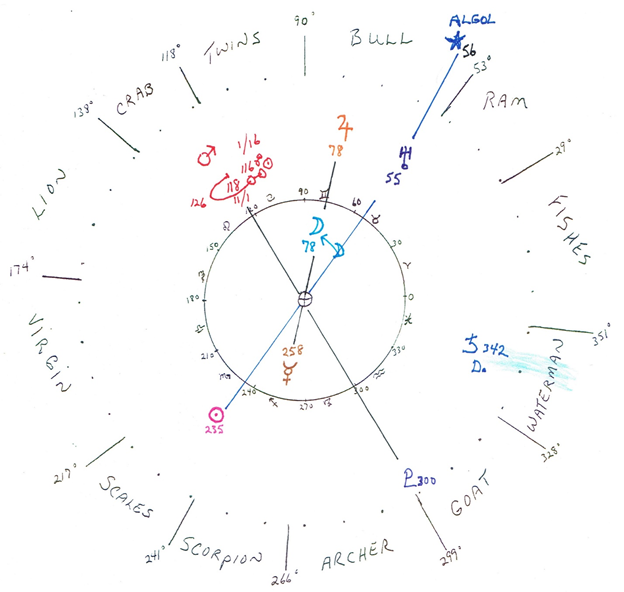 90°
ALGOL
56
BULL
TWINS
118°
53°
RAM
CRAB
138°
78
1/16
116
118
11/1
126
55
29°
FISHES
LION
120
90
60
150
78
30
174°
180
0
VIRGIN
258
210
330
342
D.
351°
WATERMAN
240
270
300
235
217°
SCALES
328°
300
GOAT
241°
SCORPION
266°
ARCHER
299°